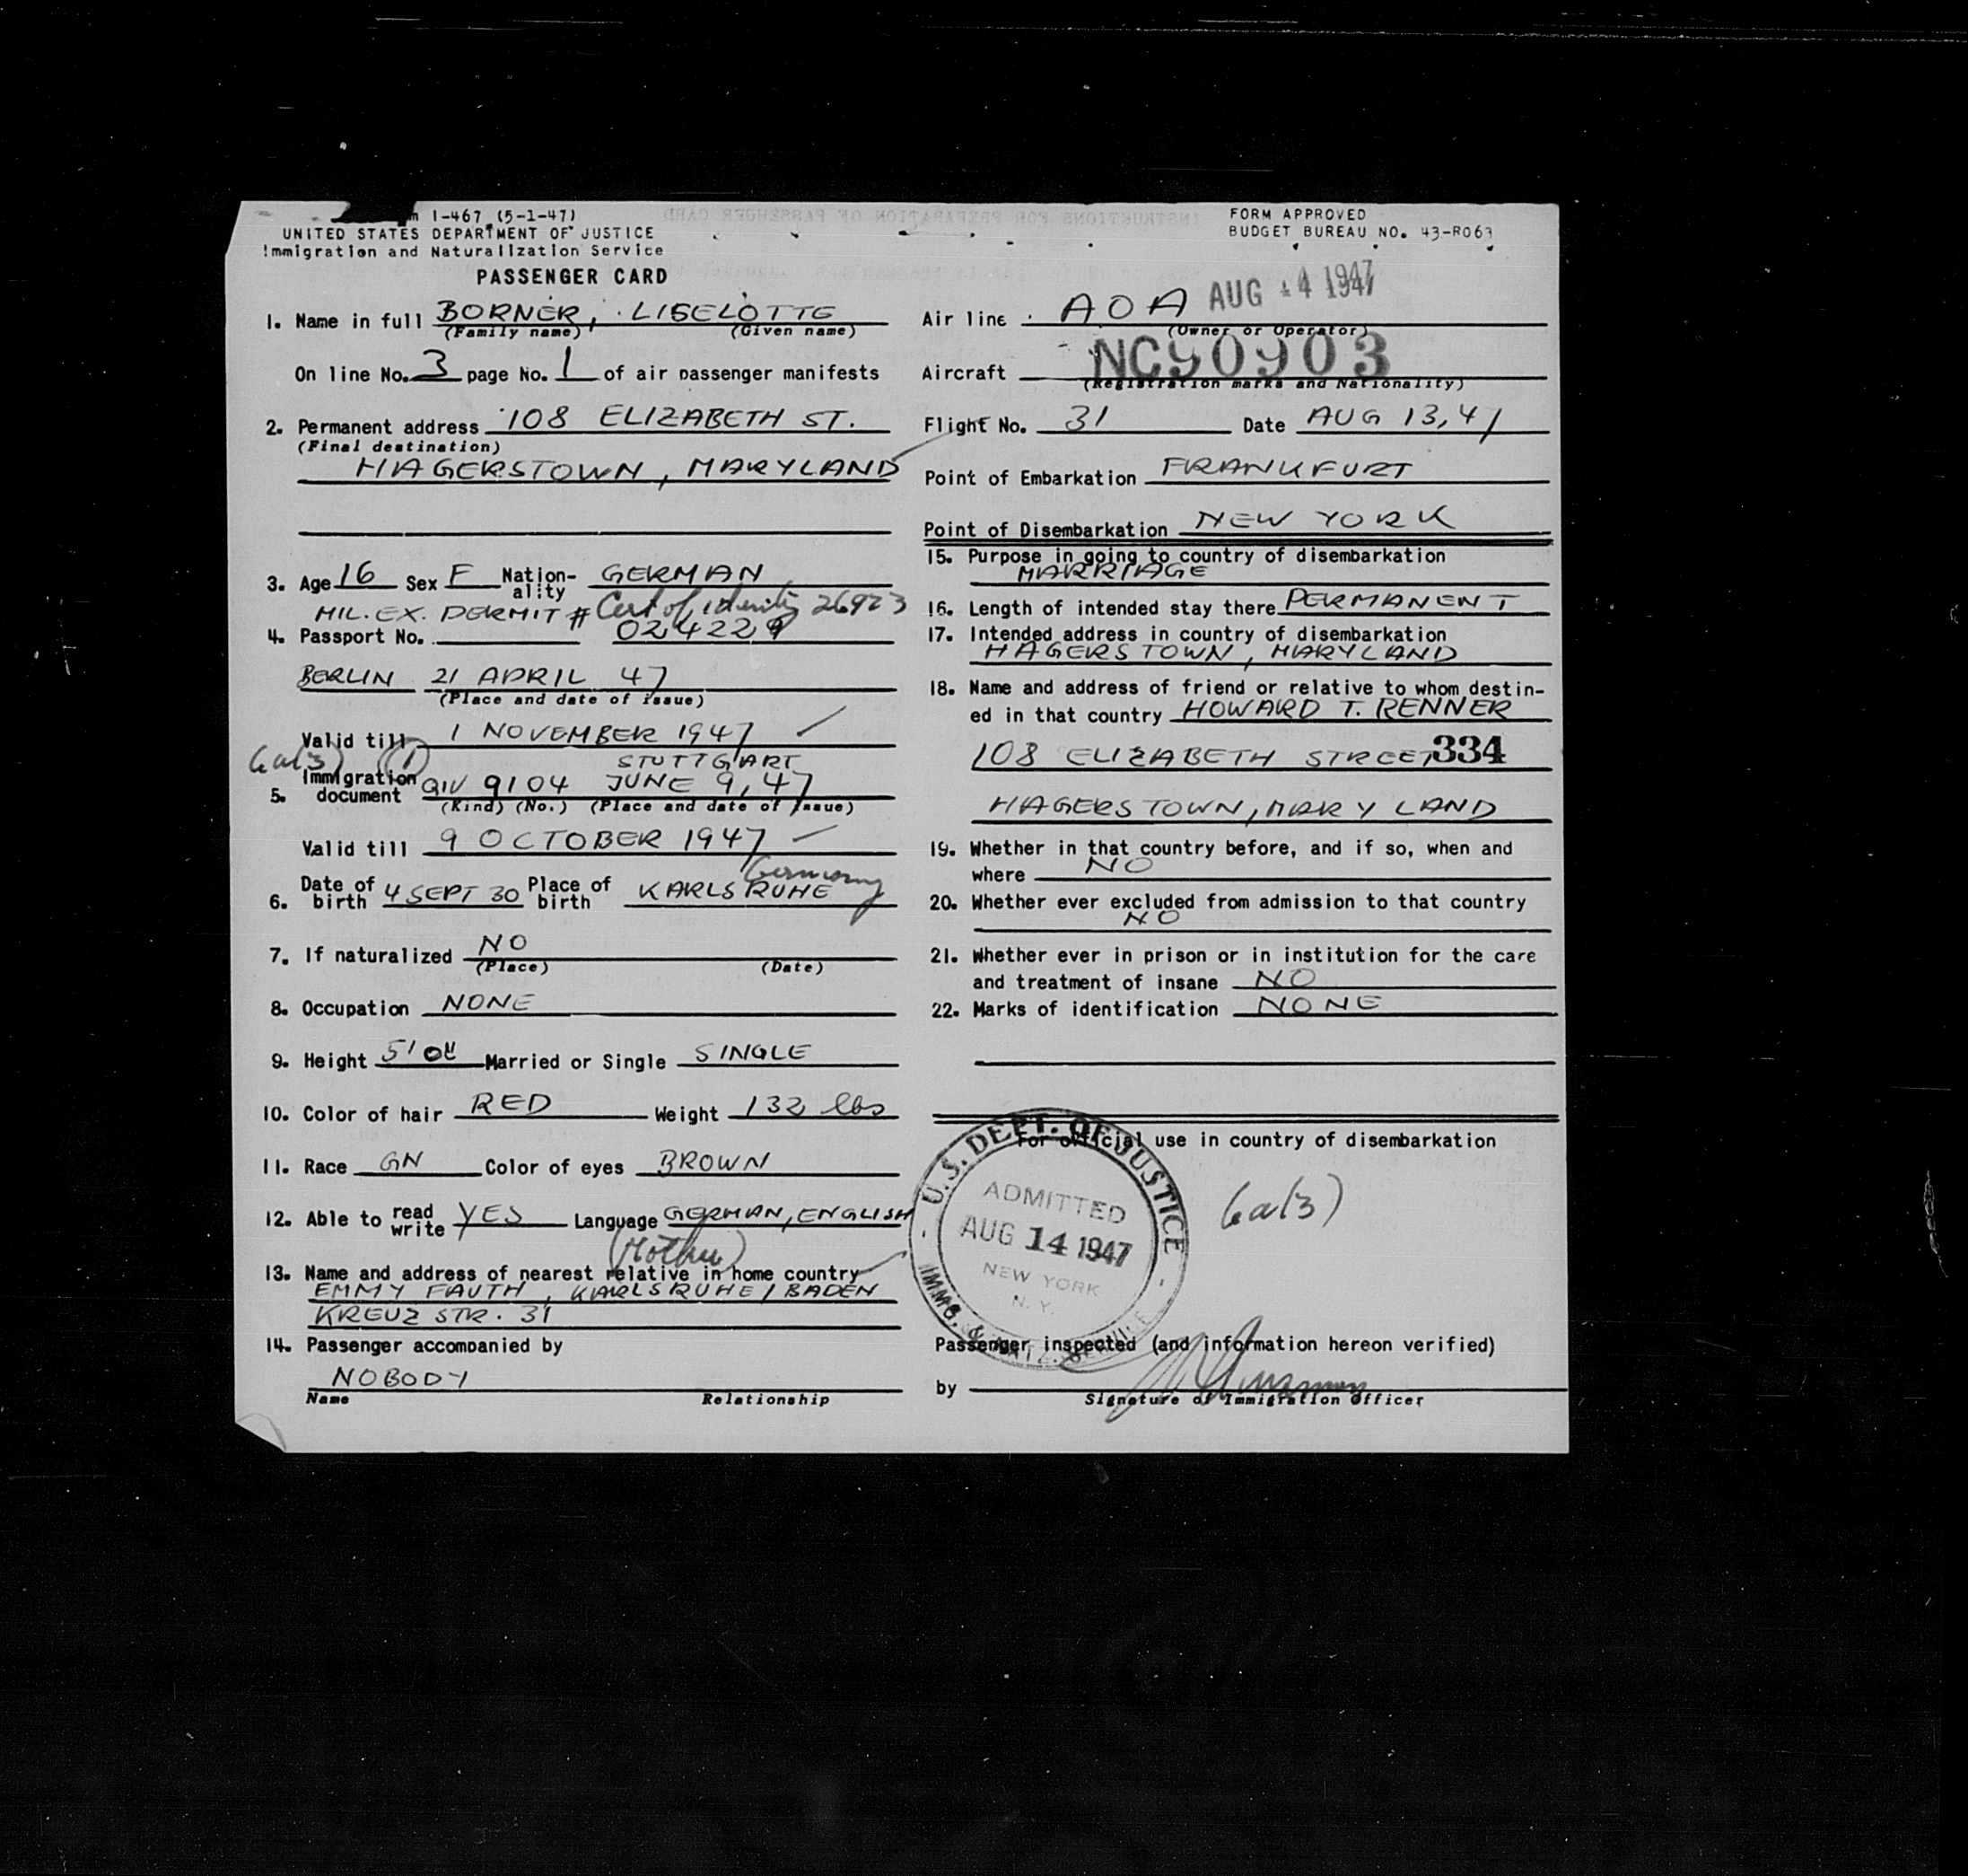 m 1-467 (5-1-47)
UNITED STATES DEPARTMENT OF JUSTICE
Immigration and Naturalization Service
PASSENGER CARD
FORM APPROVED
BUDGET BUREAU NO. 43-R063
1. Name in full BORNER, LISELOTTE
(Family name) (Given name)
On line No. 3 page No. 1 of air passenger manifests
2. Permanent address 108 ELIZABETH ST.
(Final destination)
HAGERSTOWN, MARYLAND
3. Age 16 Sex F Nation-ality GERMAN
MIL. EX. PERMIT # Cert of identity 26923
4. Passport No. 024229
BERLIN 21 APRIL 47
(Place and date of issue)
Valid till 1 NOVEMBER 1947
6a(3) (1) STUTTGART
5. Immigration document QIV 9104 JUNE 9, 47
(Kind) (No.) (Place and date of issue)
Valid till 9 OCTOBER 1947
Germany
6. Date of birth 4 SEPT 30 Place of birth KARLSRUHE
7. If naturalized NO
(Place) (Date)
8. Occupation NONE
9. Height 5'0" Married or Single SINGLE
10. Color of hair RED Weight 132 lbs
11. Race GN Color of eyes BROWN
12. Able to read write YES Language GERMAN, ENGLISH
(Mother)
13. Name and address of nearest relative in home country
EMMY FAUTH, KARLSRUHE/BADEN
KREUZ STR. 31
14. Passenger accompanied by
NOBODY
Name Relationship
Air line AOA AUG 14 1947
(Owner or Operator)
Aircraft NC90903
(Registration marks and Nationality)
Flight No. 31 Date AUG 13, 47
Point of Embarkation FRANKFURT
Point of Disembarkation NEW YORK
15. Purpose in going to country of disembarkation
MARRIAGE
16. Length of intended stay there PERMANENT
17. Intended address in country of disembarkation
HAGERSTOWN, MARYLAND
18. Name and address of friend or relative to whom destin-
ed in that country HOWARD T. RENNER
108 ELIZABETH STREET 334
HAGERSTOWN, MARYLAND
19. Whether in that country before, and if so, when and
where NO
20. Whether ever excluded from admission to that country
NO
21. Whether ever in prison or in institution for the care
and treatment of insane NO
22. Marks of identification NONE
For official use in country of disembarkation
U.S. DEPT. OF JUSTICE
ADMITTED
AUG 14 1947
NEW YORK
N. Y.
IMMG. & NATZ. SERVICE
6a(3)
Passenger inspected (and information hereon verified)
by
Signature of Immigration Officer